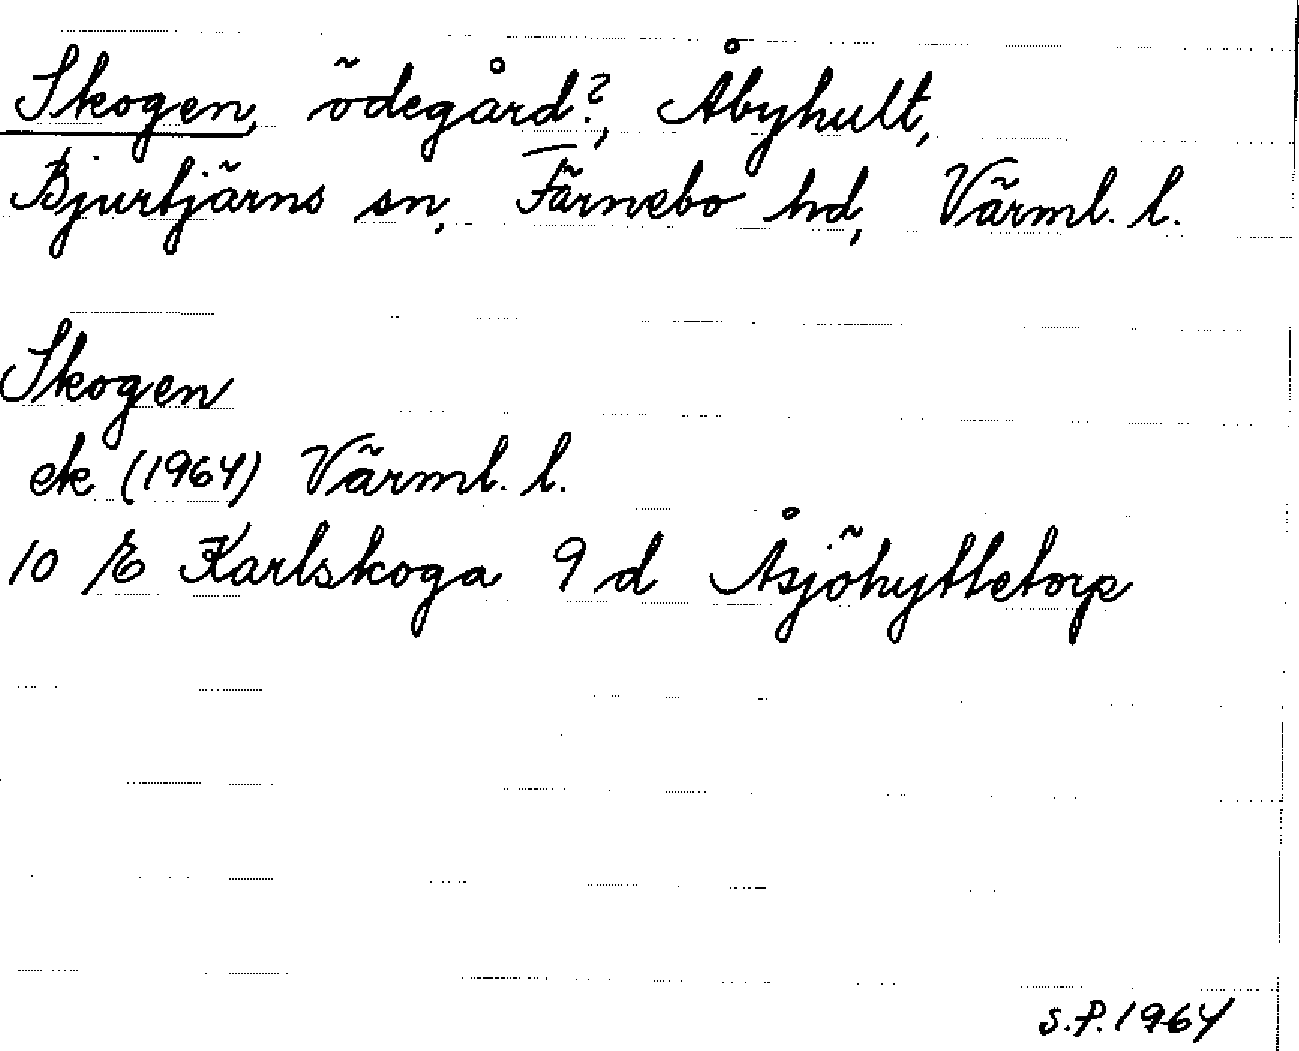 Skogen, ödegård?, Åbyhult,
Bjurtjärns sn, Färnebo hd, Värml. l.
Skogen
ek (1964) Värml. l.
10 E Karlskoga 9 d Åsjöhyttetorp
S.P. 1964